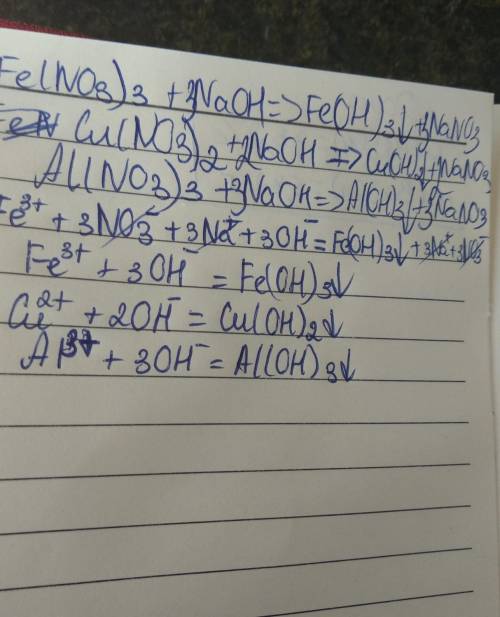 Fe(NO3)3 + 3NaOH => Fe(OH)3↓ + 3NaNO3
Cu(NO3)2 + 2NaOH => Cu(OH)2↓ + NaNO3
Al(NO3)3 + 3NaOH => Al(OH)3↓ + 3NaNO3
Fe³⁺ + 3NO3⁻ + 3Na⁺ + 3OH⁻ = Fe(OH)3↓ + 3Na⁺ + 3NO3⁻
Fe³⁺ + 3OH⁻ = Fe(OH)3↓
Cu²⁺ + 2OH⁻ = Cu(OH)2↓
Al³⁺ + 3OH⁻ = Al(OH)3↓